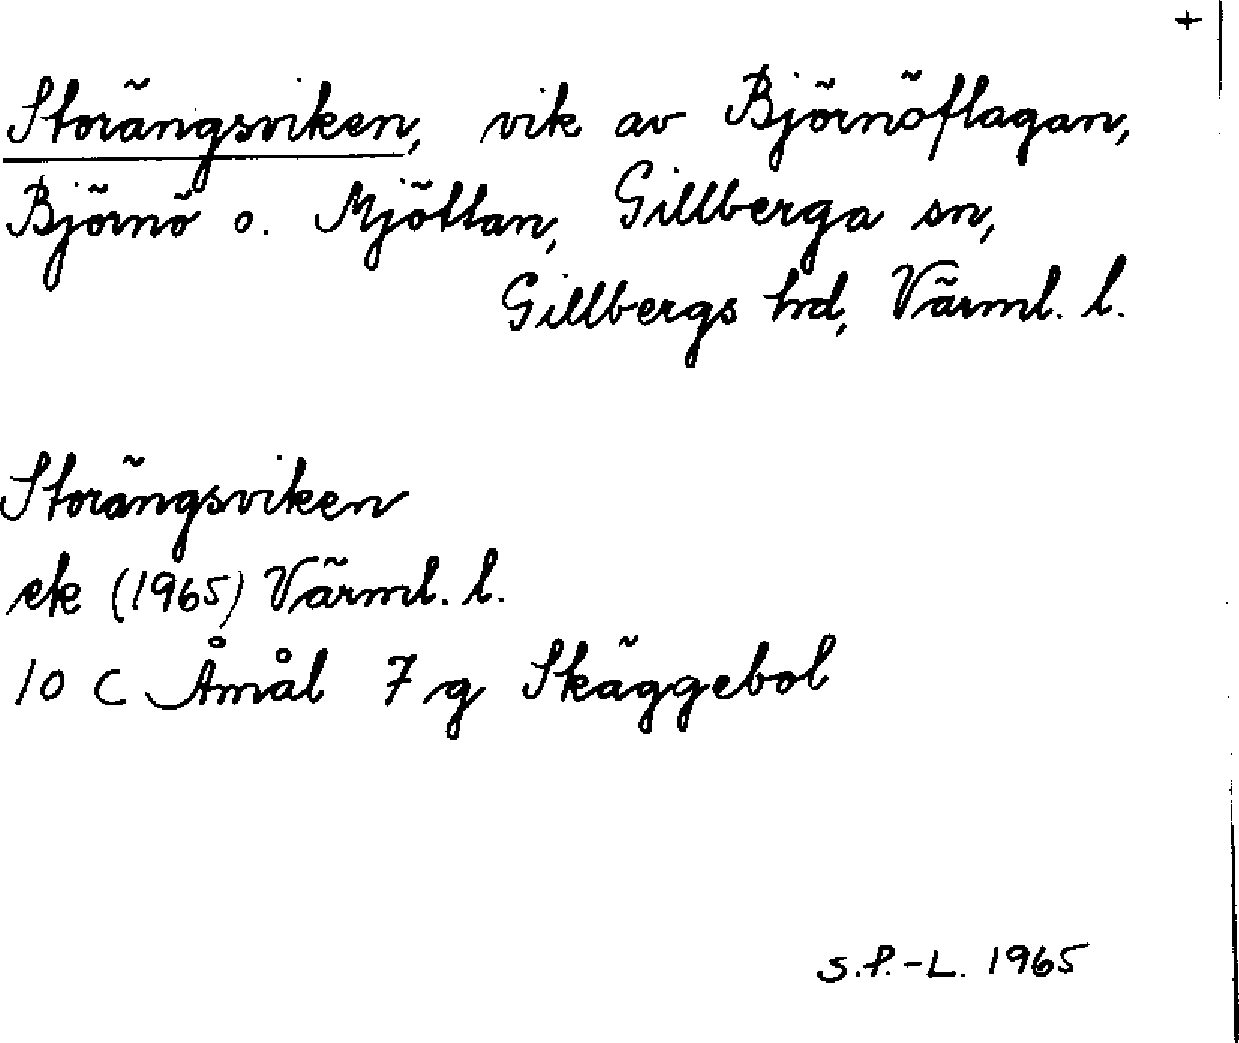 +
Storängsviken, vik av Björnöflagan,
Björnö o. Mjöttan, Gillberga sn,
Gillbergs hd, Värml. l.
Storängsviken
ek (1965) Värml. l.
10 C Åmål 7 g Skäggebol
S.P.-L. 1965